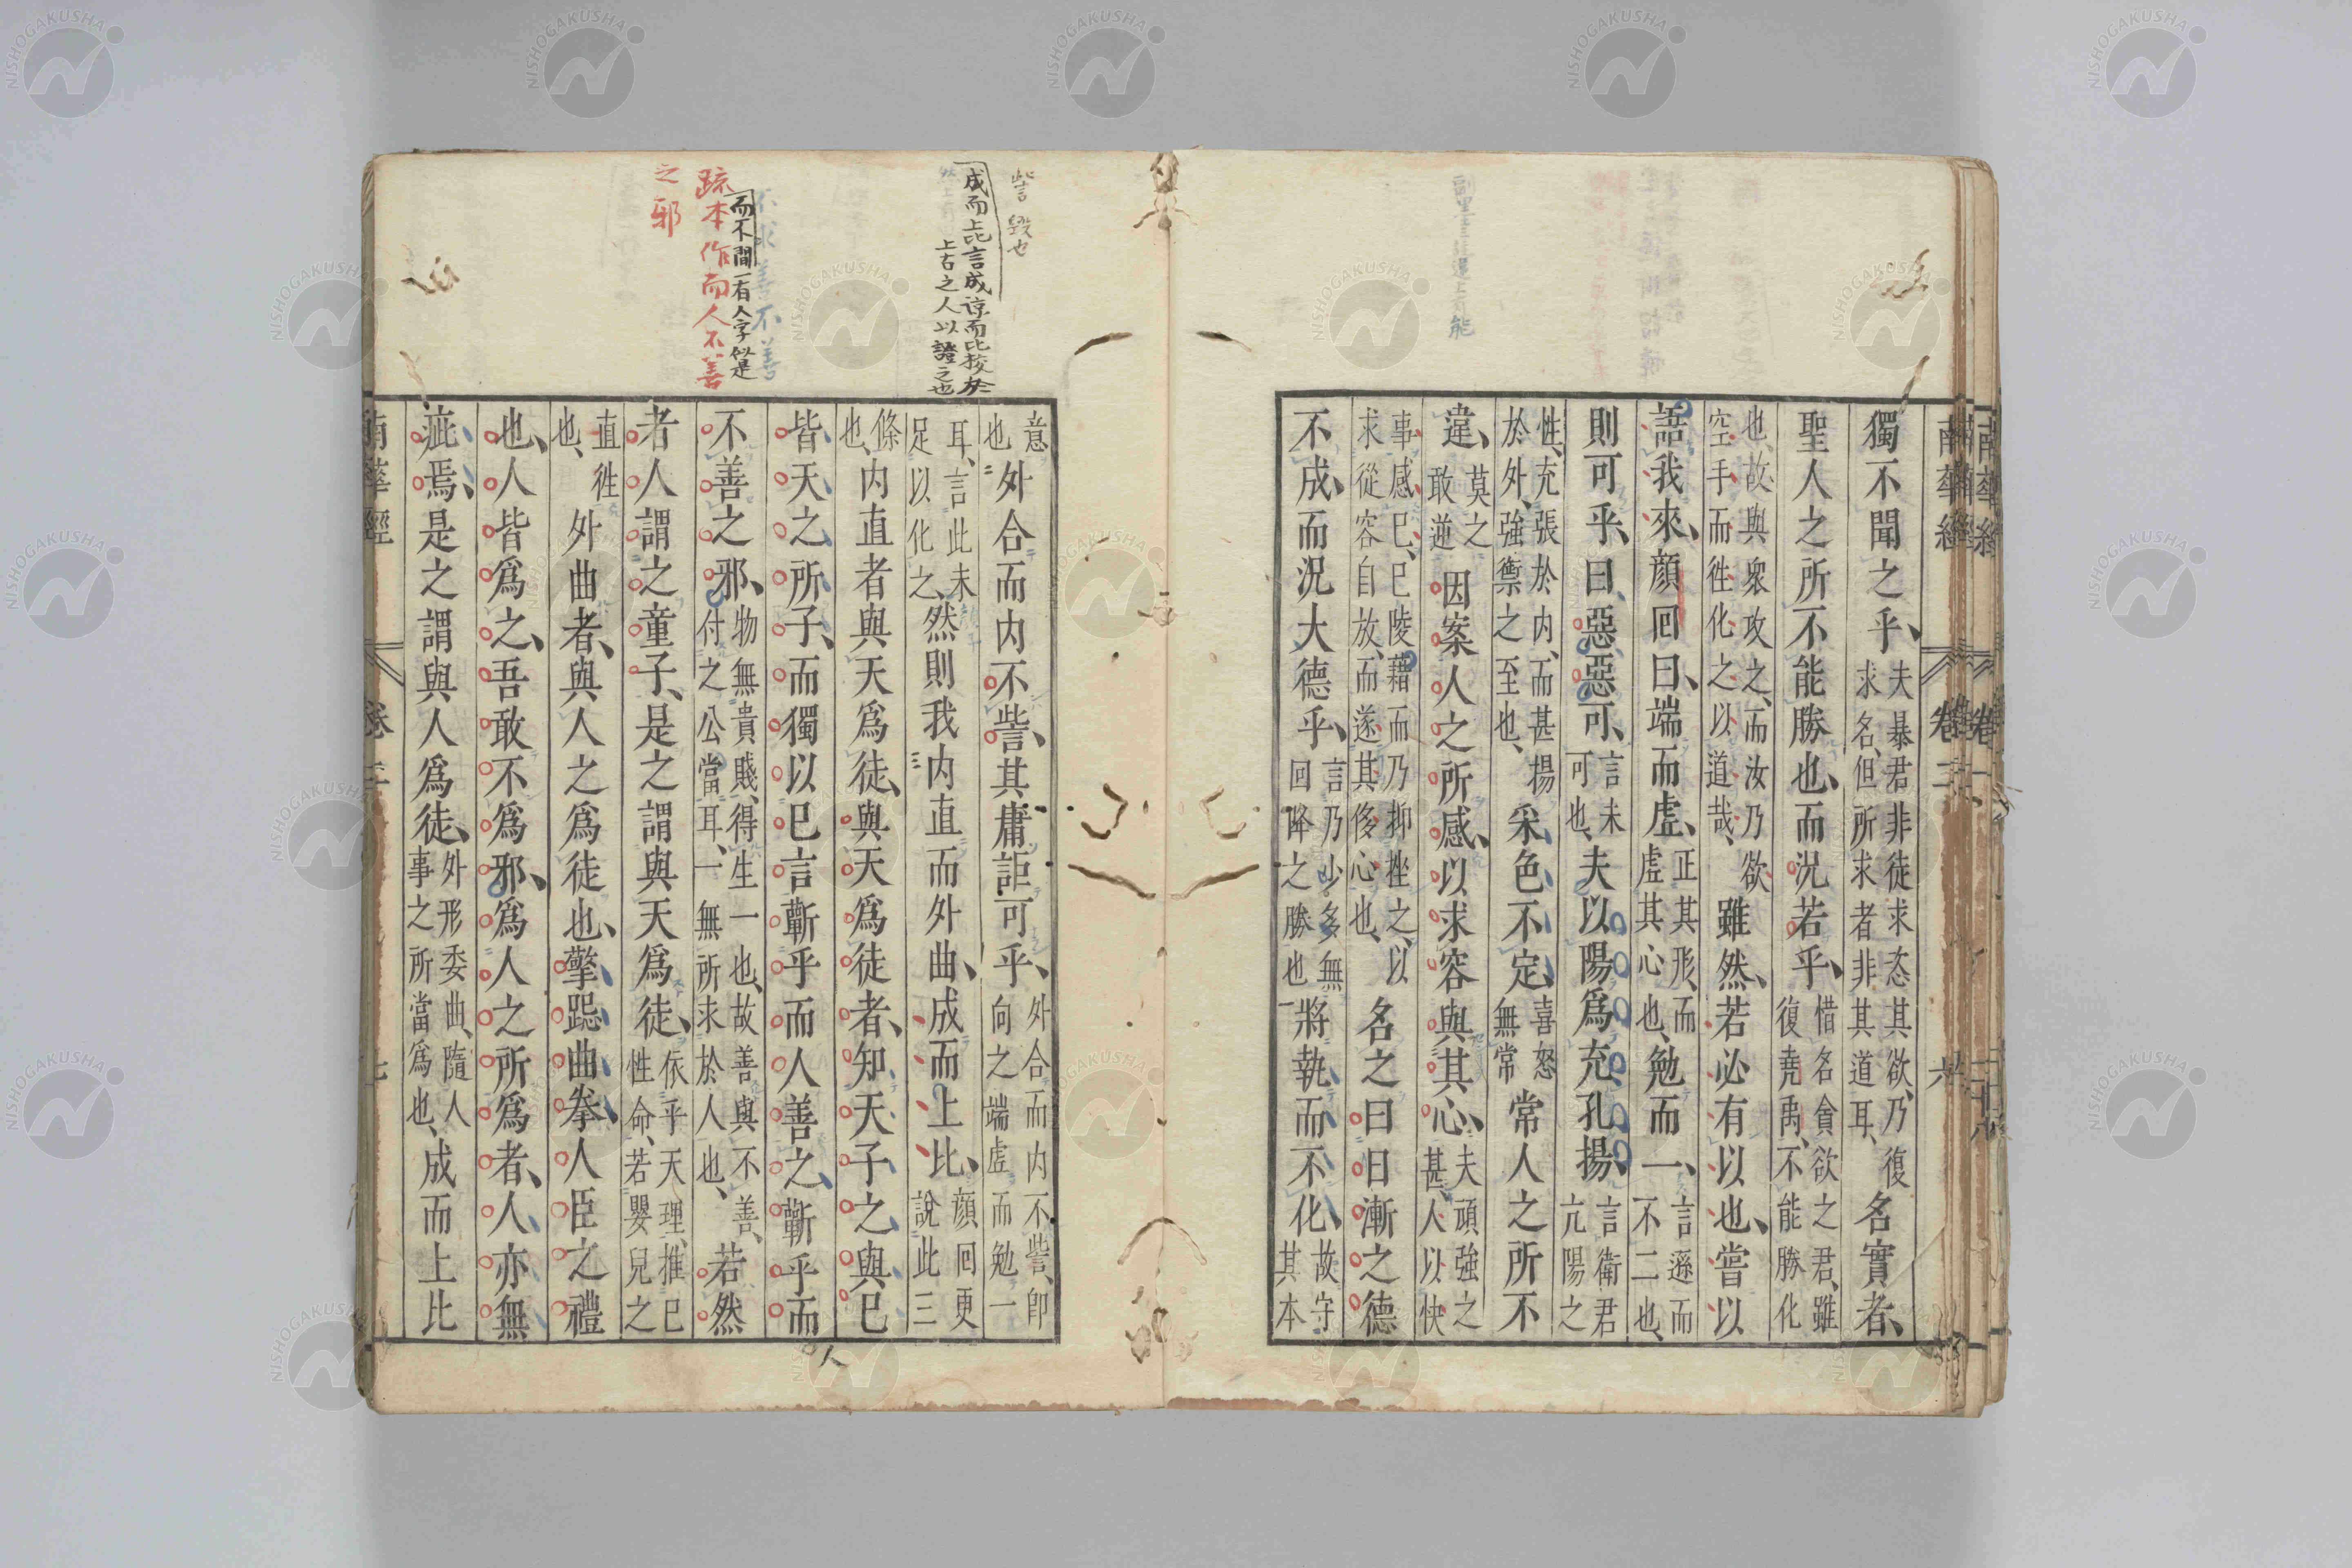 南華經 卷二 六
獨不聞之乎、夫暴君非徒求恣其欲、乃復求名、但所求者非其道耳、名實者、
聖人之所不能勝也、而況若乎、惜名貪欲之君、雖復堯禹、不能勝化
也、故與衆攻之、而汝乃欲空手而徃化之以道哉、雖然、若必有以也、嘗以
語我來、顔回曰、端而虛、正其形、而虛其心也、勉而一、言遜而不二也、
則可乎、曰、惡惡可、言未可也、夫以陽爲充孔揚、言衛君亢陽之
性、充張於内、而甚揚於外、強禦之至也、采色不定、喜怒無常常人之所不
違、莫之敢逆因案人之所感、以求容與其心、夫頑強之甚、人以快
事感已、已陵藉而乃抑挫之、以求從容自放、而遂其侈心也、名之曰日漸之德
不成、而況大德乎、言乃少多無回降之勝也將執而不化、故守其本
訾毀也
成而上比言成諒而比挍於
上古之人以證之也
而不間一有人字似是
疏本作而人不善
之邪
意也外合而内不訾、其庸詎可乎、外合而内不訾、卽向之端虛而勉一
耳、言此未足以化之、然則我内直而外曲、成而上比、顔回更說此三
條也、内直者與天爲徒、與天爲徒者、知天子之與已
皆天之所子、而獨以已言蘄乎而人善之、蘄乎而
不善之邪、物無貴賤、得生一也、故善與不善、付之公當耳、一無所求於人也、若然
者人謂之童子、是之謂與天爲徒、依乎天理、推已性命、若嬰兒之
直徃也、外曲者、與人之爲徒也、擎跽曲拳、人臣之禮
也、人皆爲之、吾敢不爲邪、爲人之所爲者、人亦無
疵焉、是之謂與人爲徒、外形委曲、隨人事之所當爲也、成而上比
人
南華經 卷二 七
NISHOGAKUSHA